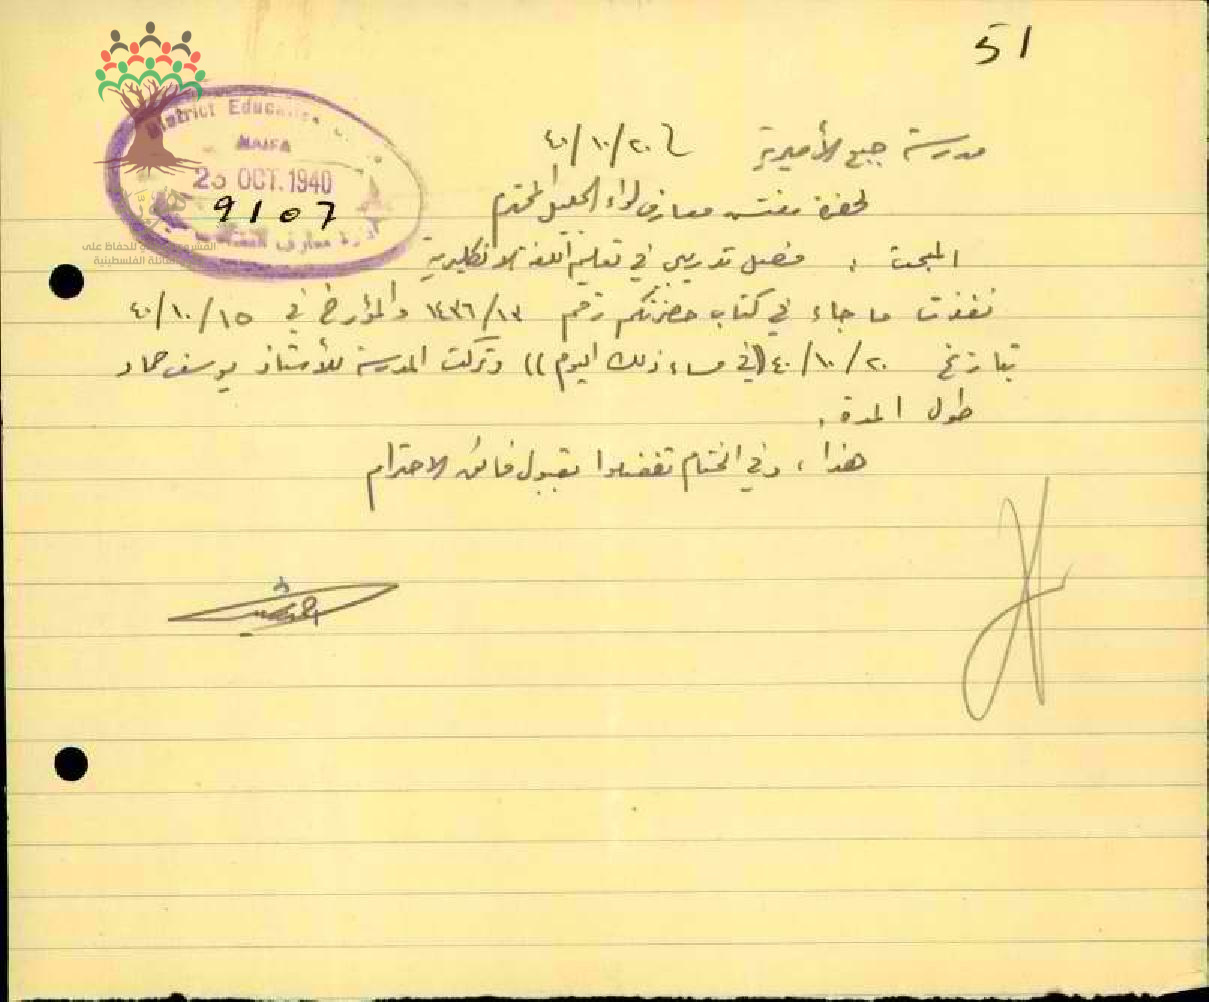 51
District Education
HAIFA
25 OCT. 1940
9107
مدرسة جبع الأميرية ٤٠/١٠/٢٠
لحضرة مفتش معارف لواء الجليل المحترم
المبحث : فصل تدريبي في تعليم اللغة الانكليزية
نفذت ما جاء في كتاب حضرتكم رقم ١٤٣٦/١٣ والمؤرخ في ٤٠/١٠/١٥
بتاريخ ٤٠/١٠/٢٠ ((في مساء ذلك اليوم)) وتركت المدرسة للأستاذ يوسف حماد
طول المدة .
هذا ، وفي الختام تفضلوا بقبول فائق الاحترام